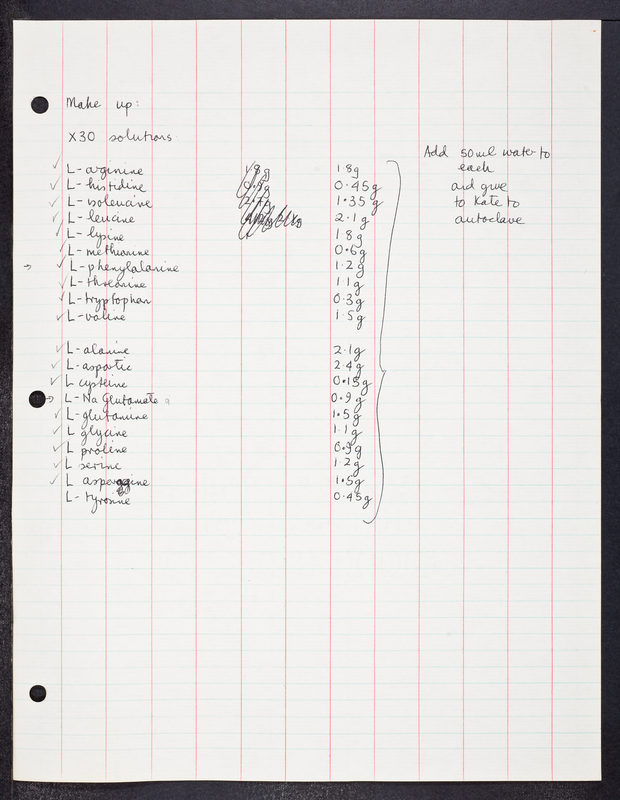 Make up:
X30 solutions
Add 50ml water to
each
and give
to Kate to
autoclave
✓ L-arginine 1.8g
✓ L-histidine 0.45g
✓ L-isoleucine 1.35g
✓ L-leucine 2.1g
✓ L-lysine 1.8g
✓ L-methionine 0.6g
→ ✓ L-phenylalanine 1.2g
✓ L-threonine 1.1g
✓ L-tryptophan 0.3g
✓ L-valine 1.5g
✓ L-alanine 2.1g
✓ L-aspartic 2.4g
✓ L cysteine 0.15g
→ L-Na Glutamate 0.9g
✓ L-glutamine 1.5g
✓ L glycine 1.1g
✓ L proline 0.9g
✓ L serine 1.2g
✓ L asparagine 1.5g
L-tyrosine 0.45g